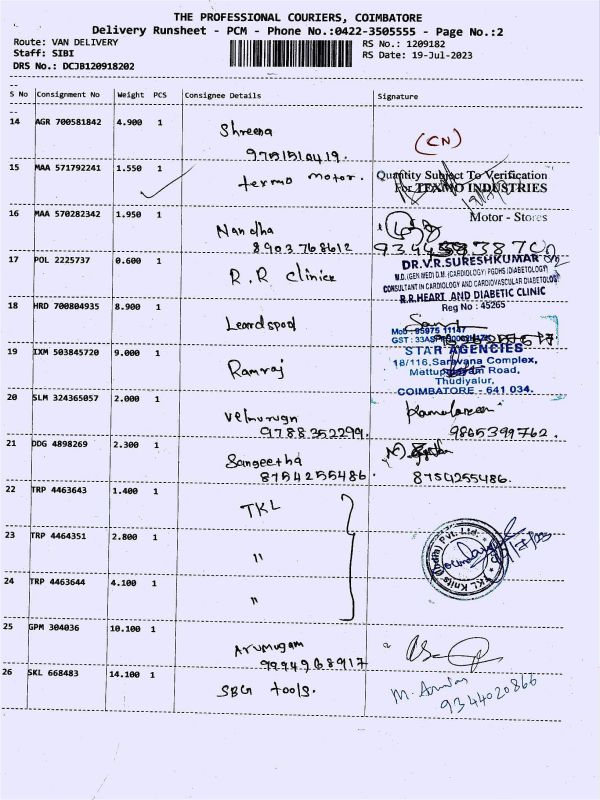 THE PROFESSIONAL COURIERS, COIMBATORE
Delivery Runsheet - PCM - Phone No.:0422-3505555 - Page No.:2
Route: VAN DELIVERY
RS No.: 1209182
Staff: SIBI
RS Date: 19-Jul-2023
DRS No.: DCJB120918202
S No Consignment No Weight PCS Consignee Details Signature
14 AGR 700581842 4.900 1 Shreena
9751510419.
(CN)
15 MAA 571792241 1.550 1 termo motor.
Quantity Subject To Verification
For TEXMO INDUSTRIES
Motor - Stores
16 MAA 570282342 1.950 1 Nandha
8903768612
17 POL 2225737 0.600 1 R.R clinice
DR.V.R.SURESHKUMAR
M.D.(GEN MED) D.M. (CARDIOLOGY) PGDHS (DIABETOLOGY)
CONSULTANT IN CARDIOLOGY AND CARDIOVASCULAR DIABETOLOGIST
R.R.HEART AND DIABETIC CLINIC
Reg No : 45265
18 HRD 700804935 8.900 1 Leardspool
Mob : 95975 11147
19 IXM 503845720 9.000 1 Ramraj
STAR AGENCIES
18/116, Saravana Complex,
Mettupalayam Road,
Thudiyalur,
COIMBATORE - 641 034.
20 SLM 324365057 2.000 1 Velmurugn
9788352299.
9865399762.
21 DDG 4898269 2.300 1 Sangeetha
8754255486.
8754255486.
22 TRP 4463643 1.400 1 TKL
23 TRP 4464351 2.800 1 "
TKL Knits (India) Pvt. Ltd.
24 TRP 4463644 4.100 1 "
25 GPM 304036 10.100 1 Arumugam
9994968917
26 SKL 668483 14.100 1 SBG tools.
9344020866